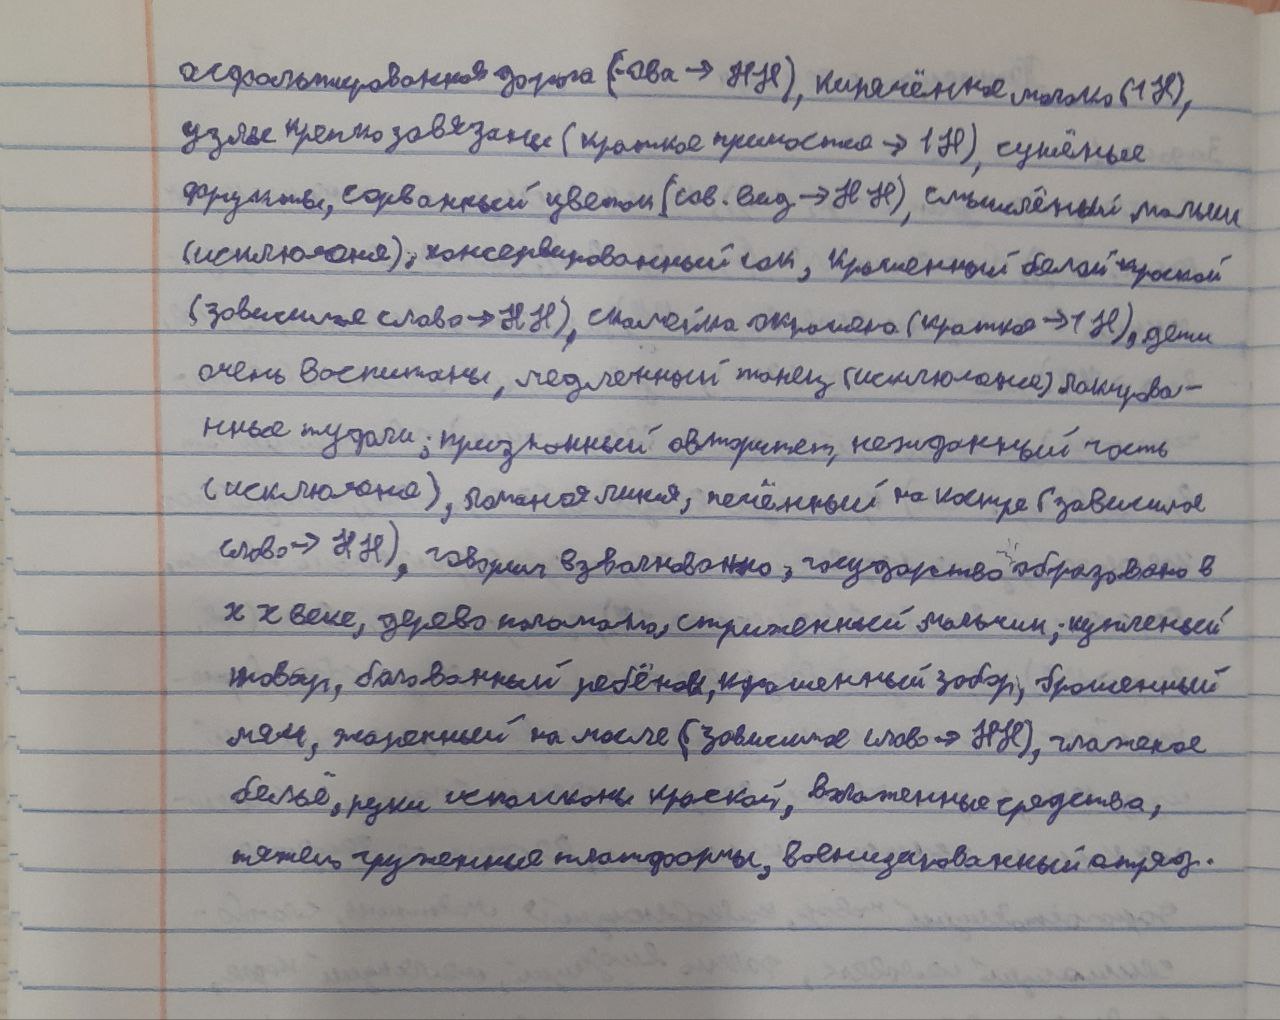 асфальтированная дорога (-ова → НН), кипячённое молоко (1 Н),
узлы крепко завязаны (краткое причастие → 1 Н), сушёные
фрукты, сорванный цветок (сов. вид → НН), смышлёный малыш
(исключение), консервированный сок, крашенный белой краской
(зависимое слово → НН), скамейка окрашена (краткое → 1 Н), дети
очень воспитаны, медленный танец (исключение) лакирова-
нные туфли, признанный авторитет, нежданный гость
(исключение), ломаная линия, печённый на костре (зависимое
слово → НН), говорил взволнованно, государство образовано в
XX веке, дерево поломано, стриженный мальчик, купленый
товар, балованный ребёнок, крашенный забор, брошенный
мяч, жаренный на масле (зависимое слово → НН), глаженое
бельё, руки испачканы краской, вложенные средства,
тяжело груженные платформы, военизированный отряд.